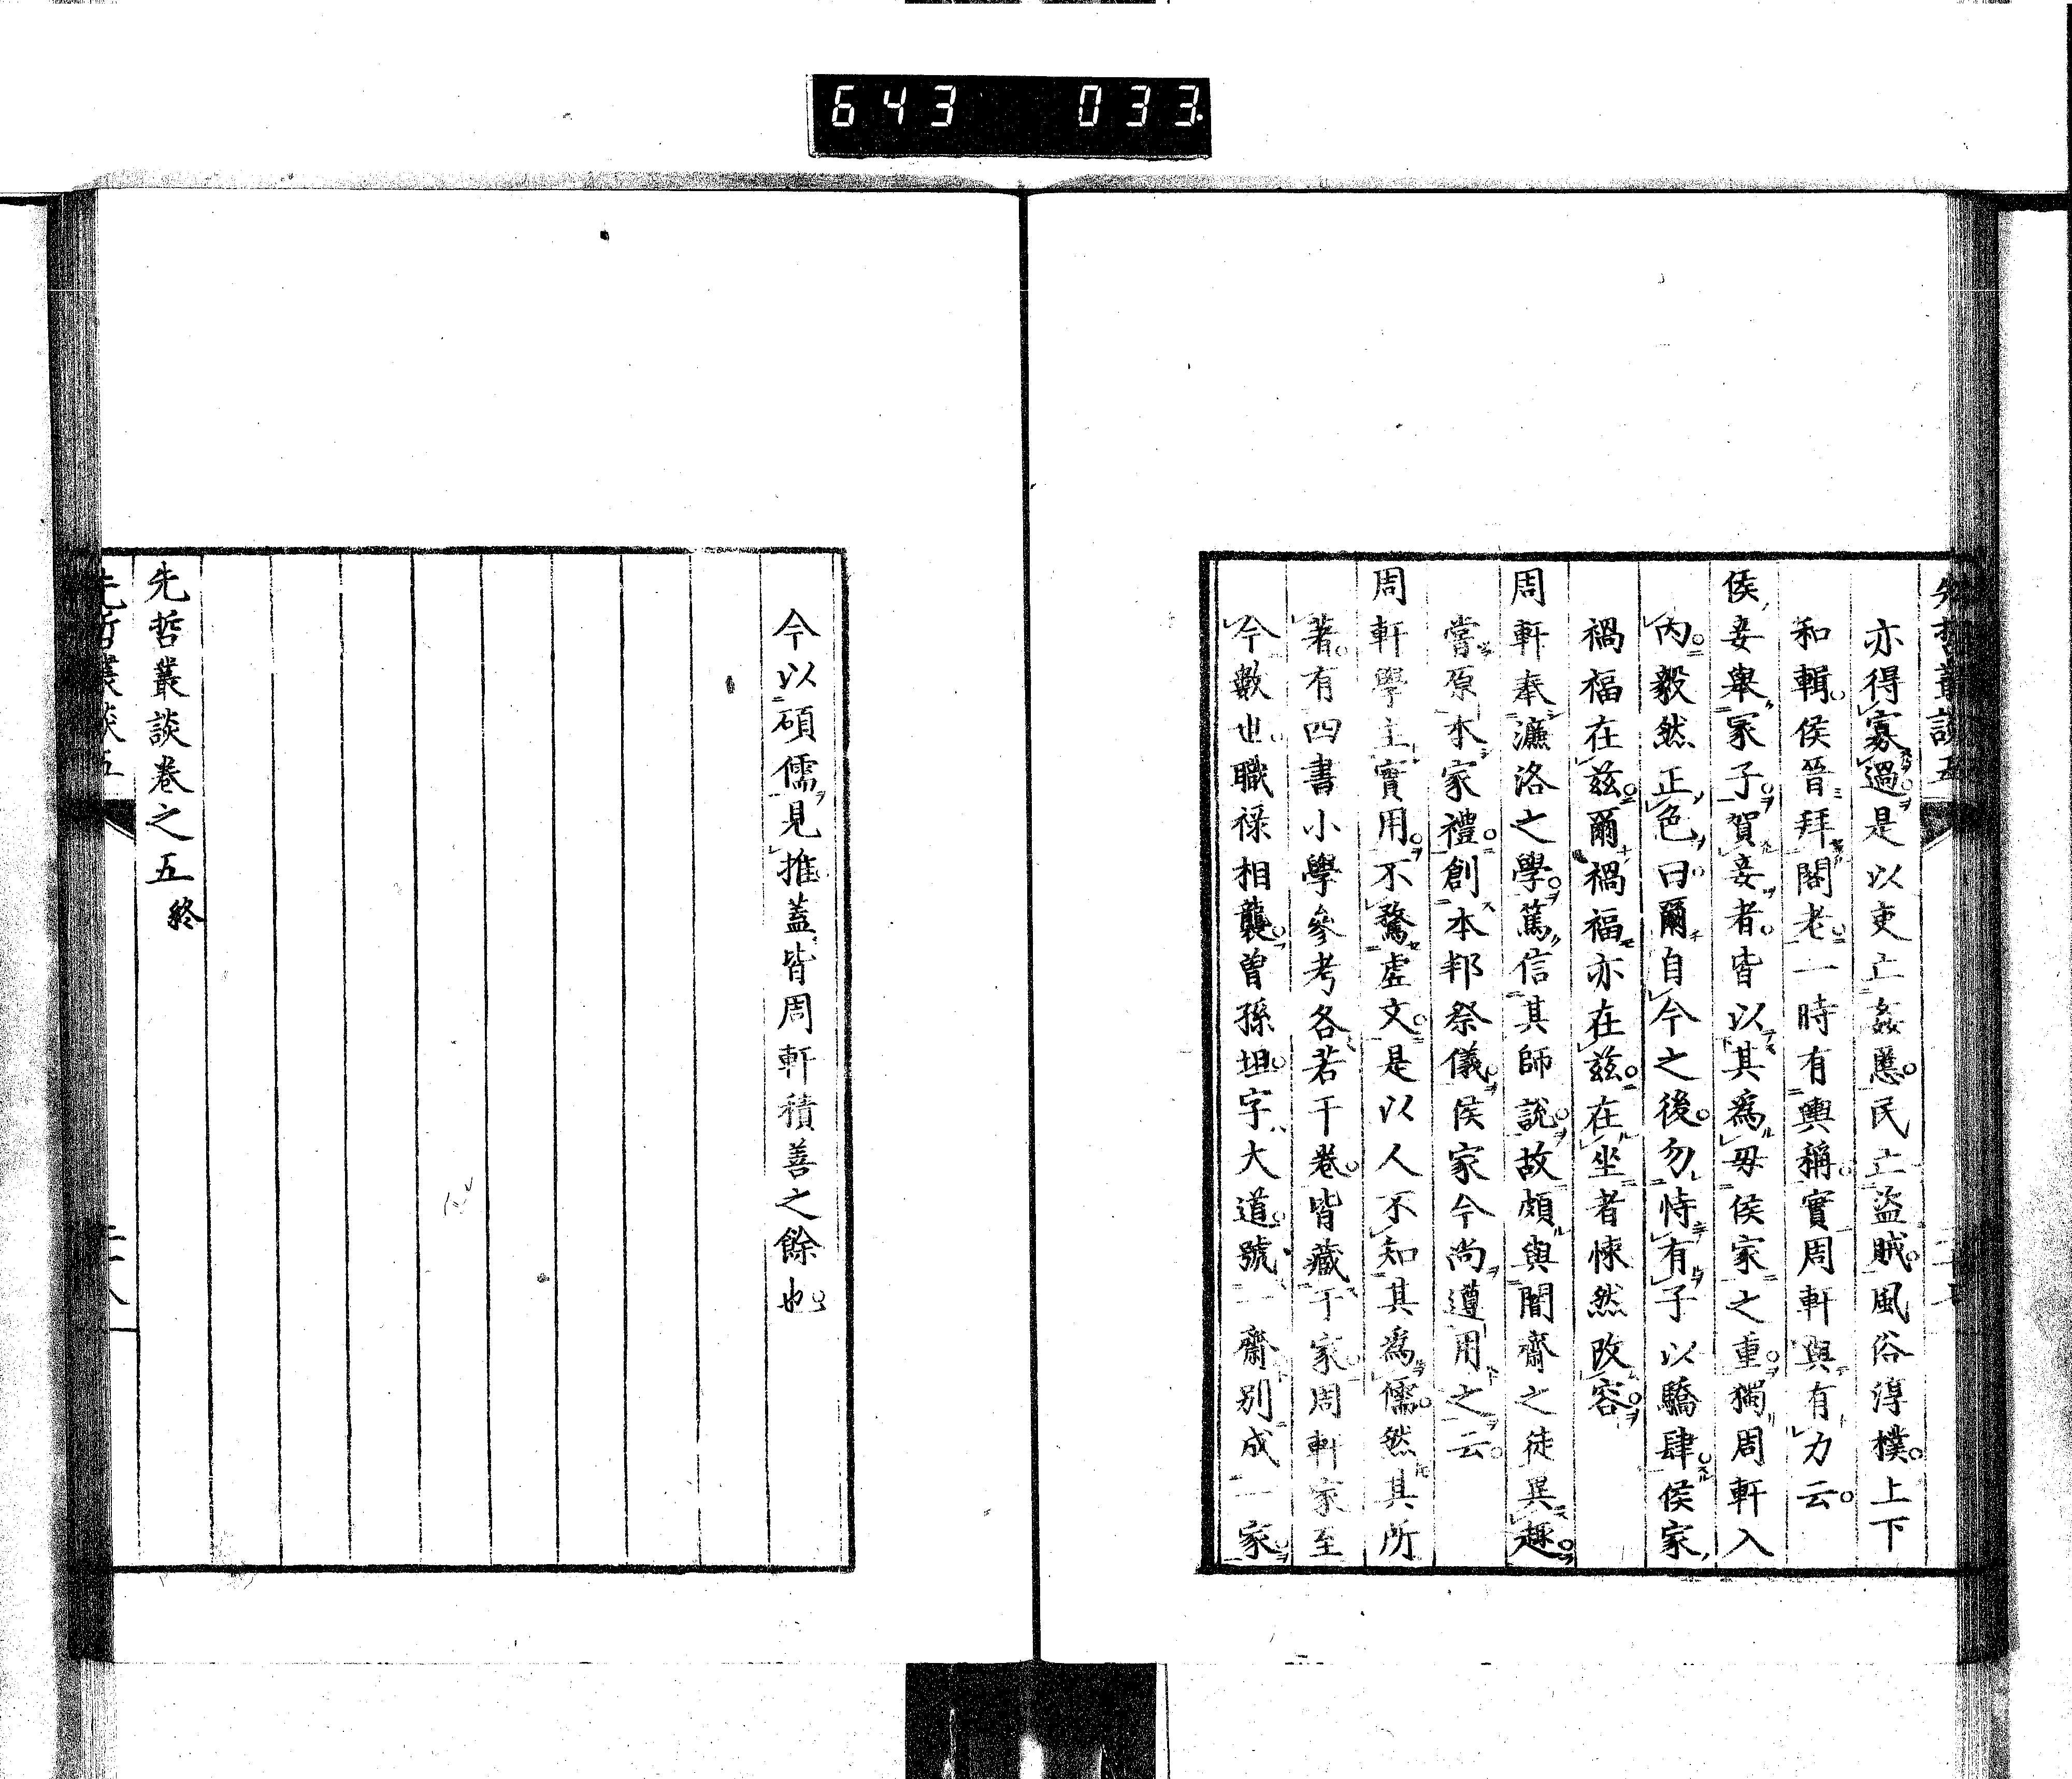 643 033
先哲叢談五
亦得寡過是以吏亡姦慝民亡盜賊風俗淳樸上下
和輯侯晉拜閣老一時有輿稱實周軒與有力云
侯妾舉冢子賀妾者皆以其爲毋侯家之重獨周軒入
內毅然正色曰爾自今之後勿恃有子以驕肆侯家
禍福在茲爾禍福亦在茲在坐者悚然改容
周軒奉濂洛之學篤信其師說故頗與闇齋之徒異趣
嘗原本家禮創本邦祭儀侯家今尚遵用之云
周軒學主實用不騖虛文是以人不知其爲儒然其所
著有四書小學參考各若干卷皆藏于家周軒家至
今數世職祿相襲曾孫坦字大道號一齋別成一家
今以碩儒見推蓋皆周軒積善之餘也
先哲叢談卷之五終
先哲叢談五